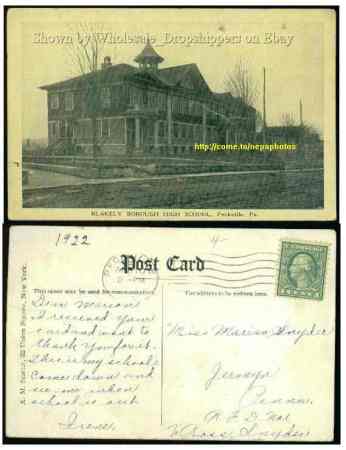 Shown by Wholesale_Dropshippers on Ebay
http://come.to/nepaphotos
BLAKELY BOROUGH HIGH SCHOOL, Peckville, Pa.
1922
Post Card
This space may be used for communication.
For address to be written here.
A. M. Simon, 32 Union Square, New York.
Dear Marion
I received your
card and want to
thank you for it.
This is my school
come down and
see me when
school is out
Irene.
Miss Marion Snyder
Jermyn
Penna
R. F. D. No1
% Ross Snyder